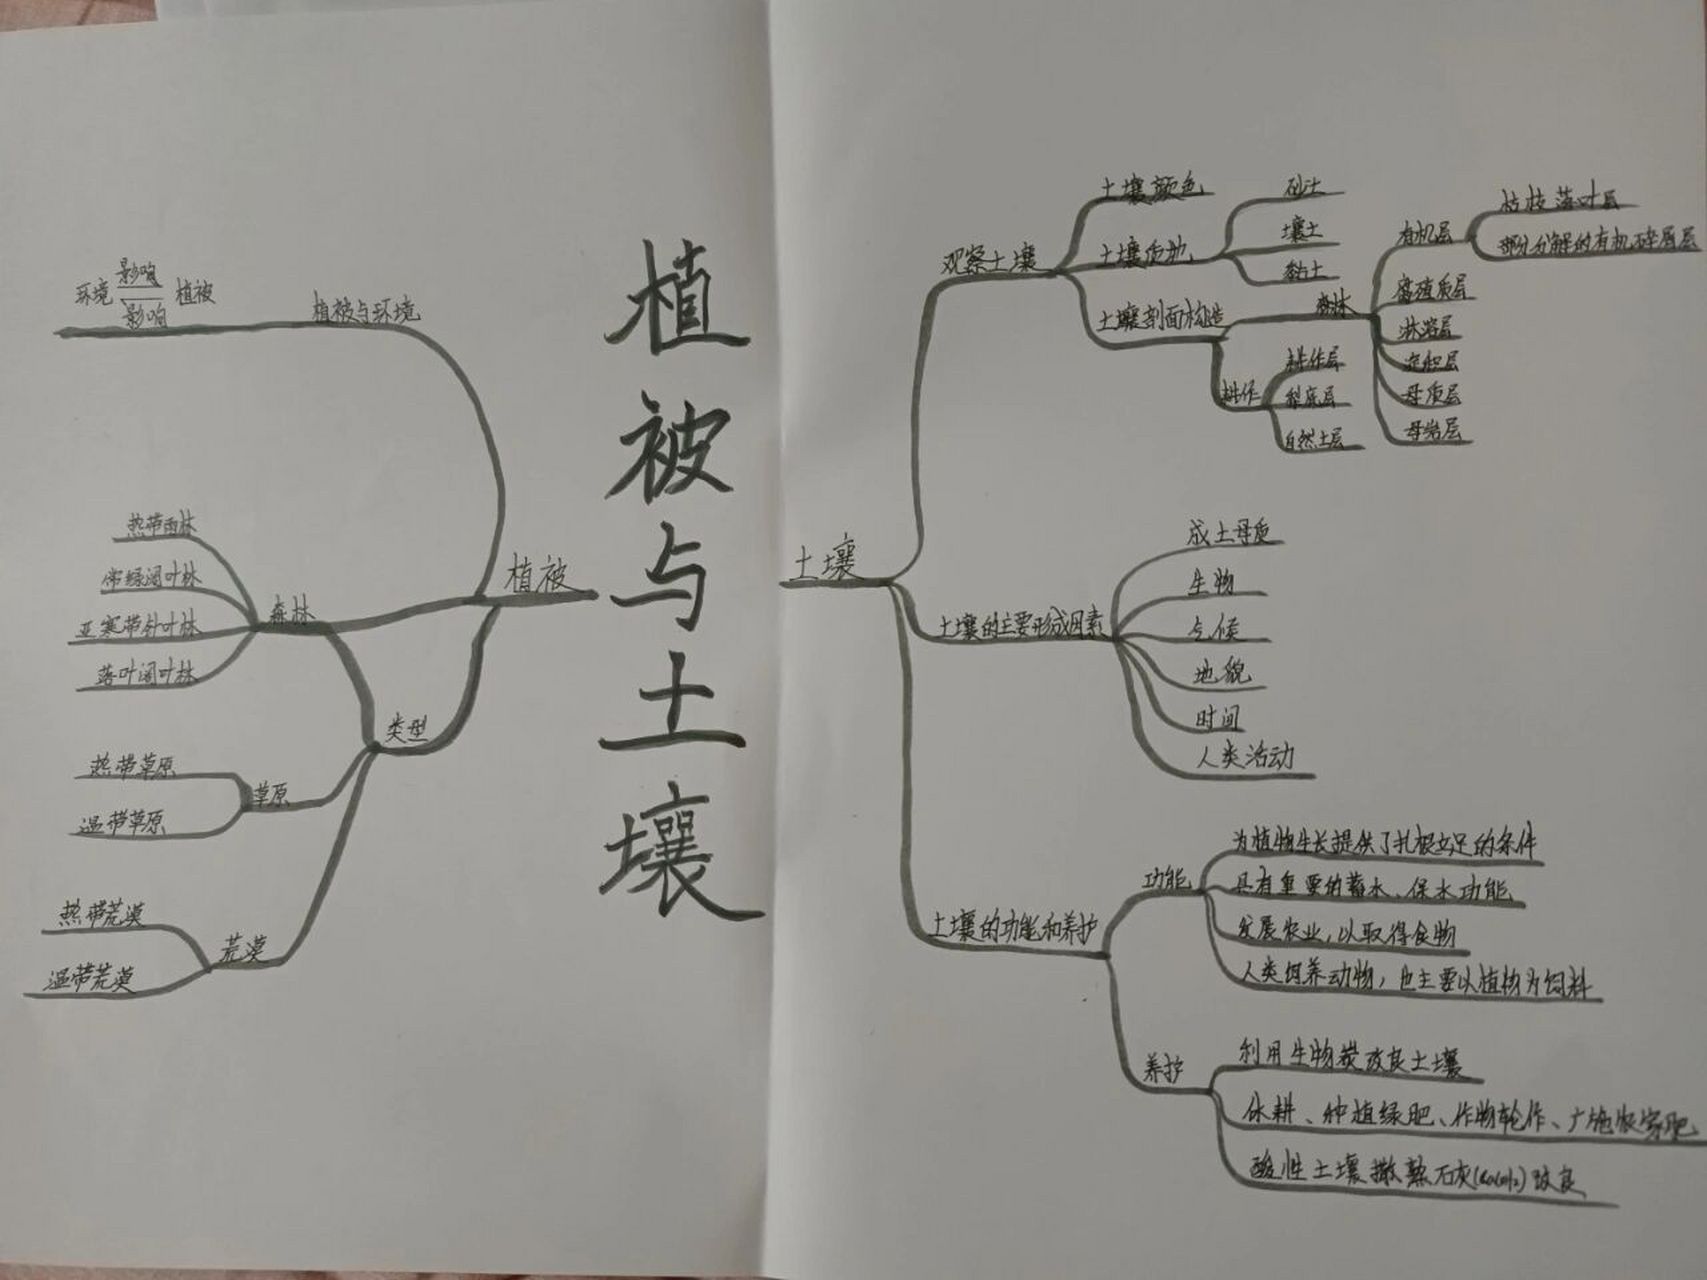 植被与土壤
植被
植被与环境
环境 影响 植被
影响
类型
森林
热带雨林
常绿阔叶林
亚寒带针叶林
落叶阔叶林
草原
热带草原
温带草原
荒漠
热带荒漠
温带荒漠
土壤
观察土壤
土壤颜色
土壤质地
砂土
壤土
黏土
土壤剖面构造
森林
有机层
枯枝落叶层
部分分解的有机碎屑层
腐殖质层
淋溶层
淀积层
母质层
母岩层
耕作
耕作层
犁底层
自然土层
土壤的主要形成因素
成土母质
生物
气候
地貌
时间
人类活动
土壤的功能和养护
功能
为植物生长提供了扎根立足的条件
具有重要的蓄水、保水功能
发展农业,以取得食物
人类饲养动物,也主要以植物为饲料
养护
利用生物炭改良土壤
休耕、种植绿肥、作物轮作、广施农家肥
酸性土壤撒熟石灰改良